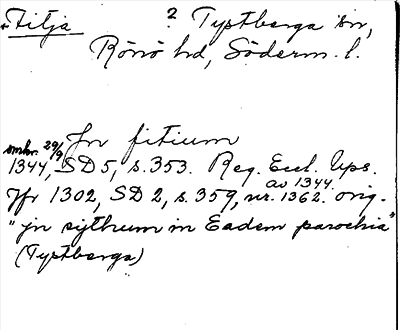 +Fitja ? Tystberga sn,
Rönö hd, Söderm. l.
Jn fitium
omkr. 29/9
1344, SD 5, s. 353. Reg. Eccl. Ups.
av 1344.
Jfr 1302, SD 2, s. 359, nr. 1362. orig.
"jn sythum in Eadem parochia"
(Tystberga)